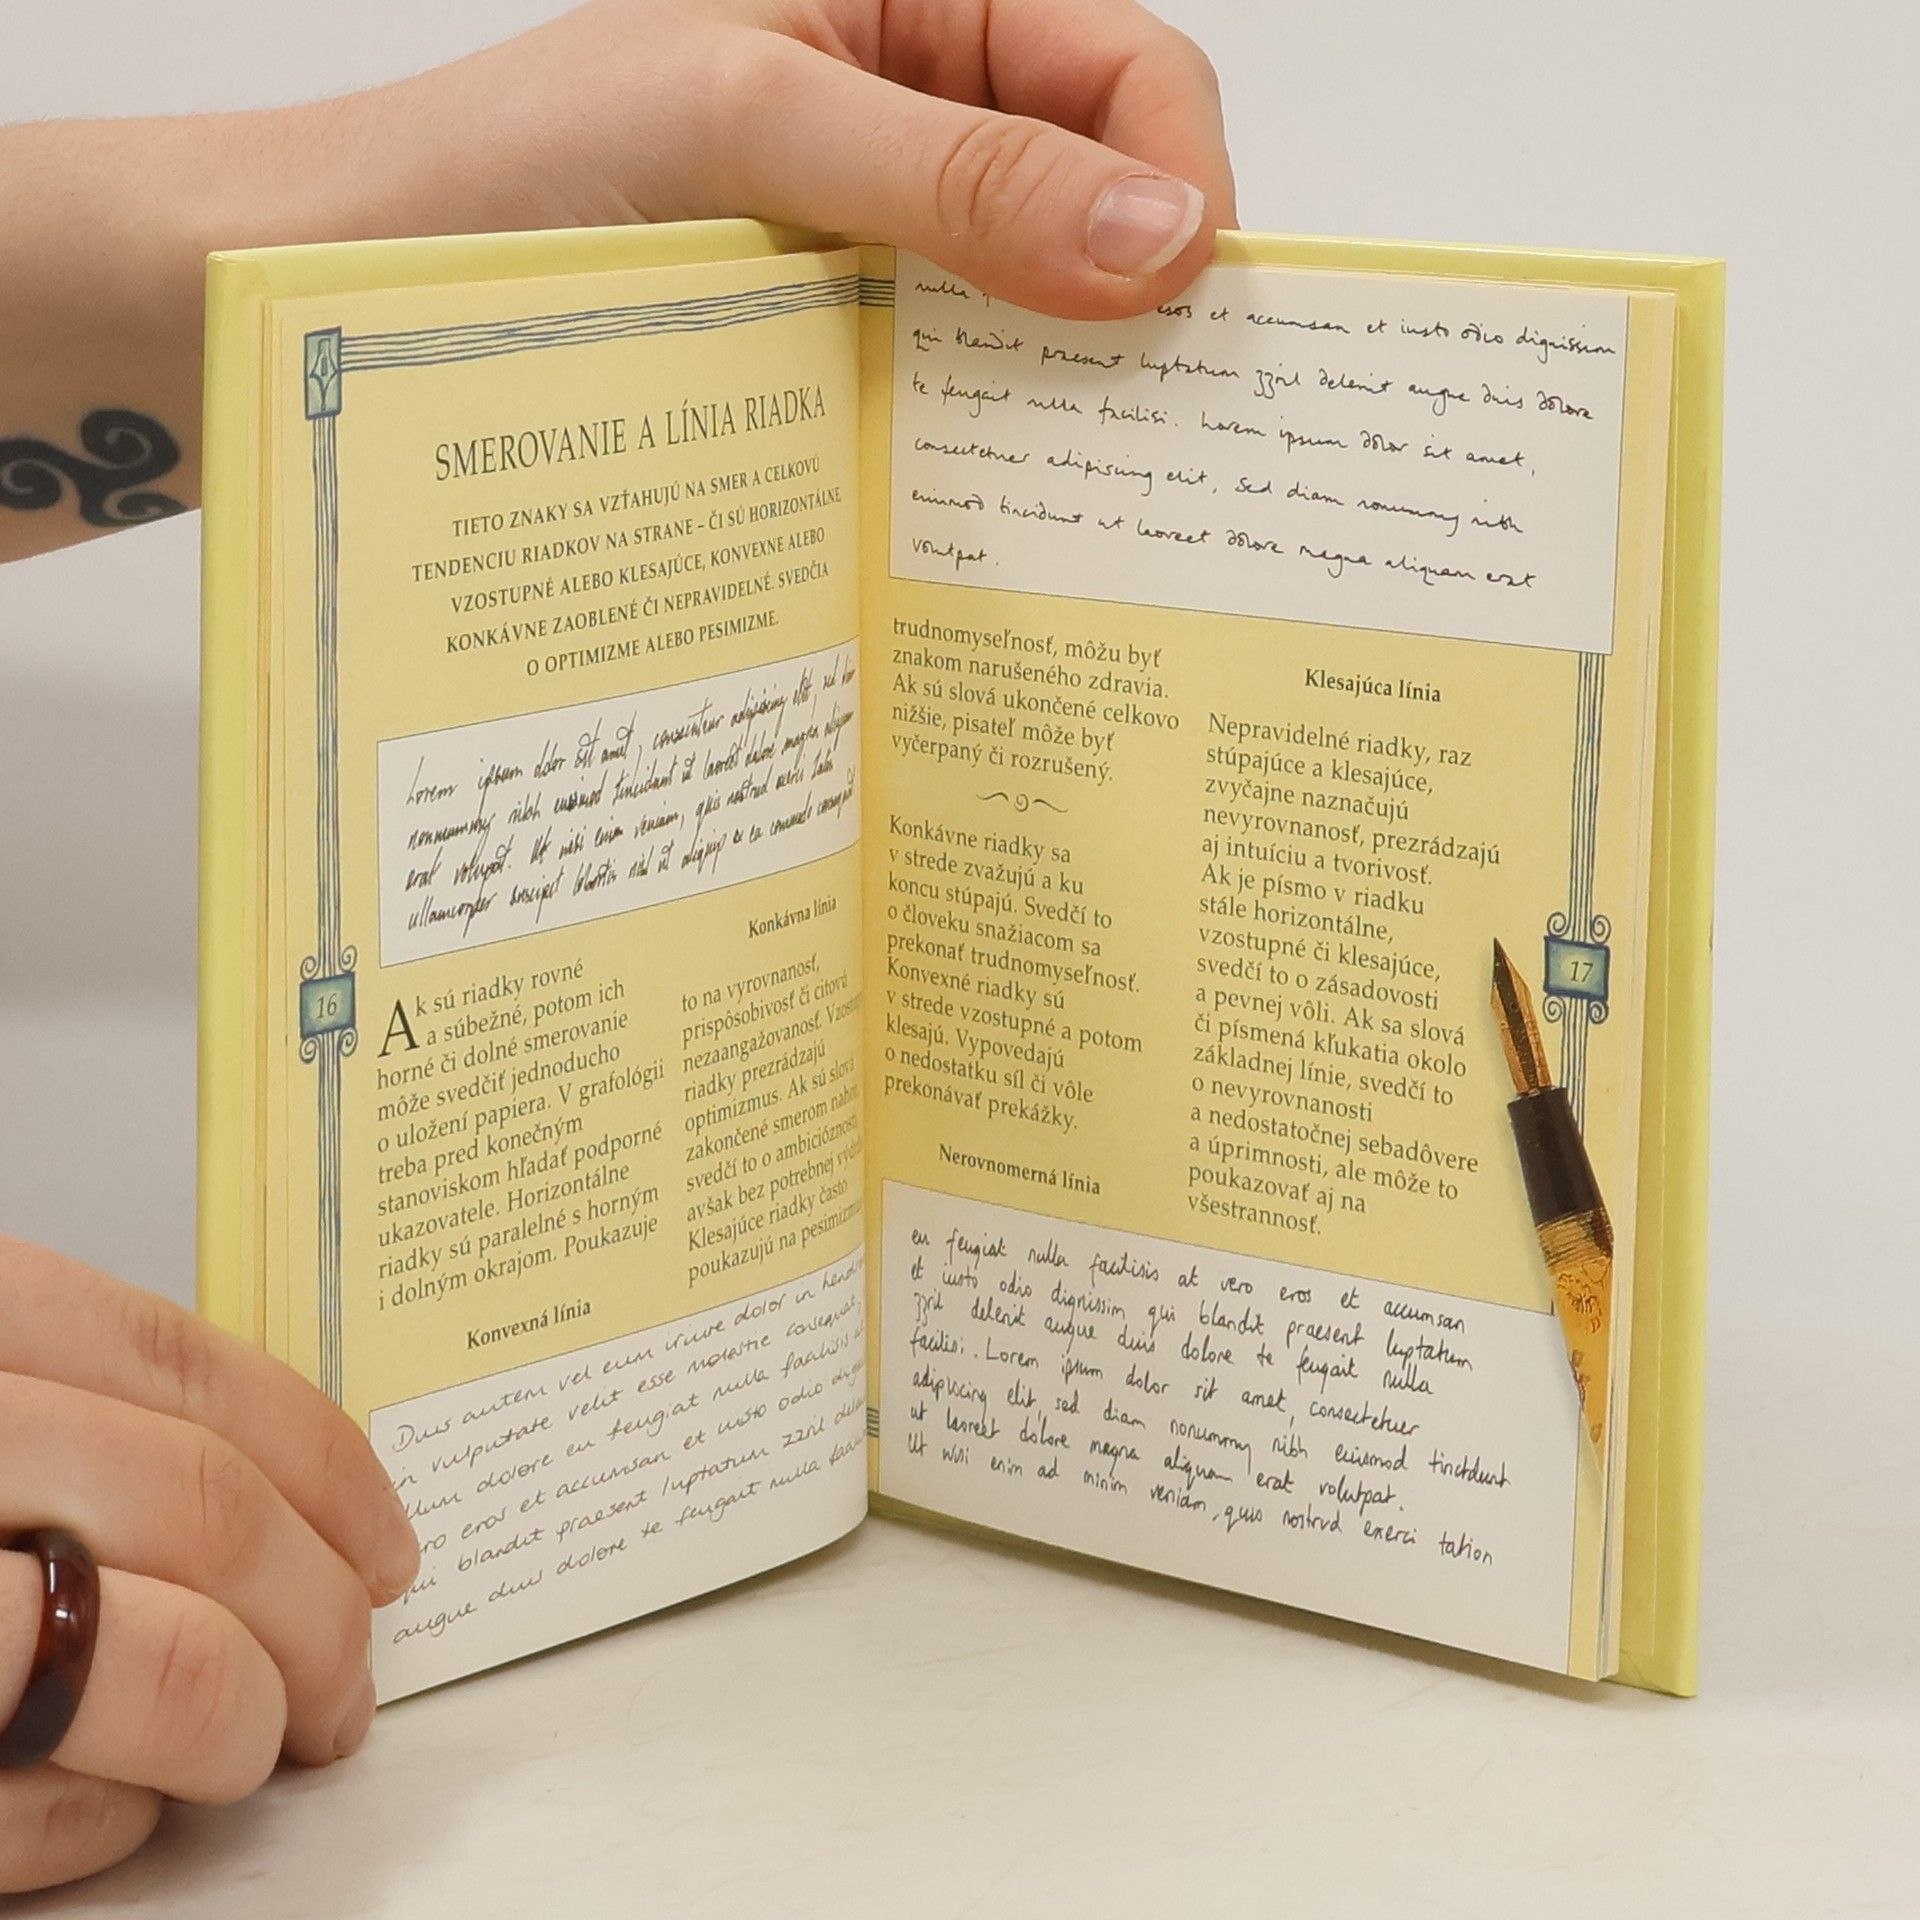 SMEROVANIE A LÍNIA RIADKA
TIETO ZNAKY SA VZŤAHUJÚ NA SMER A CELKOVÚ
TENDENCIU RIADKOV NA STRANE – ČI SÚ HORIZONTÁLNE,
VZOSTUPNÉ ALEBO KLESAJÚCE, KONVEXNE ALEBO
KONKÁVNE ZAOBLENÉ ČI NEPRAVIDELNÉ. SVEDČIA
O OPTIMIZME ALEBO PESIMIZME.
Lorem ipsum dolor sit amet, consectetur adipiscing elit, sed
nonnummy nibh euismod tincidunt ut laoreet dolore magna aliquam
erat volutpat. Ut wisi enim veniam, quis nostrud exerci
ullamcorper suscipit lobortis nisl ut aliquip ex ea commodo consequat
Konkávna línia
Ak sú riadky rovné
a súbežné, potom ich
horné či dolné smerovanie
môže svedčiť jednoducho
o uložení papiera. V grafológii
treba pred konečným
stanoviskom hľadať podporné
ukazovatele. Horizontálne
riadky sú paralelné s horným
i dolným okrajom. Poukazuje
Konvexná línia
to na vyrovnanosť,
prispôsobivosť či citovú
nezaangažovanosť.
riadky prezrádzajú
optimizmus. Ak sú slová
zakončené smerom
svedčí to o
avšak bez potrebnej
Klesajúce riadky často
poukazujú na
Duis autem vel eum iriure dolor in
in vulputate velit esse molestie consequat,
illum dolore eu feugiat nulla facilisis
eros et accumsan et iusto odio
blandit praesent luptatum zzril
augue duis dolore te feugait nulla
16
nulla et accumsan et iusto odio dignissim
qui blandit praesent luptatum zzril delenit augue duis dolore
te feugait nulla facilisi. Lorem ipsum dolor sit amet,
consectetuer adipiscing elit, sed diam nonummy nibh
euismod tincidunt ut laoreet dolore magna aliquam erat
volutpat.
trudnomyseľnosť, môžu byť
znakom narušeného zdravia.
Ak sú slová ukončené celkovo
nižšie, pisateľ môže byť
vyčerpaný či rozrušený.
Konkávne riadky sa
v strede zvažujú a ku
koncu stúpajú. Svedčí to
o človeku snažiacom sa
prekonať trudnomyseľnosť.
Konvexné riadky sú
v strede vzostupné a potom
klesajú. Vypovedajú
o nedostatku síl či vôle
prekonávať prekážky.
Nerovnomerná línia
Klesajúca línia
Nepravidelné riadky, raz
stúpajúce a klesajúce,
zvyčajne naznačujú
nevyrovnanosť, prezrádzajú
aj intuíciu a tvorivosť.
Ak je písmo v riadku
stále horizontálne,
vzostupné či klesajúce,
svedčí to o zásadovosti
a pevnej vôli. Ak sa slová
či písmená kľukatia okolo
základnej línie, svedčí to
o nevyrovnanosti
a nedostatočnej sebadôvere
a úprimnosti, ale môže to
poukazovať aj na
všestrannosť.
17
eu feugiat nulla facilisis at vero eros et accumsan
et iusto odio dignissim qui blandit praesent luptatum
zzril delenit augue duis dolore te feugait nulla
facilisi. Lorem ipsum dolor sit amet, consectetuer
adipiscing elit, sed diam nonummy nibh euismod tinctdunt
ut laoreet dolore magna aliquam erat volutpat.
Ut wisi enim ad minim veniam, quis nostrud exerci tation